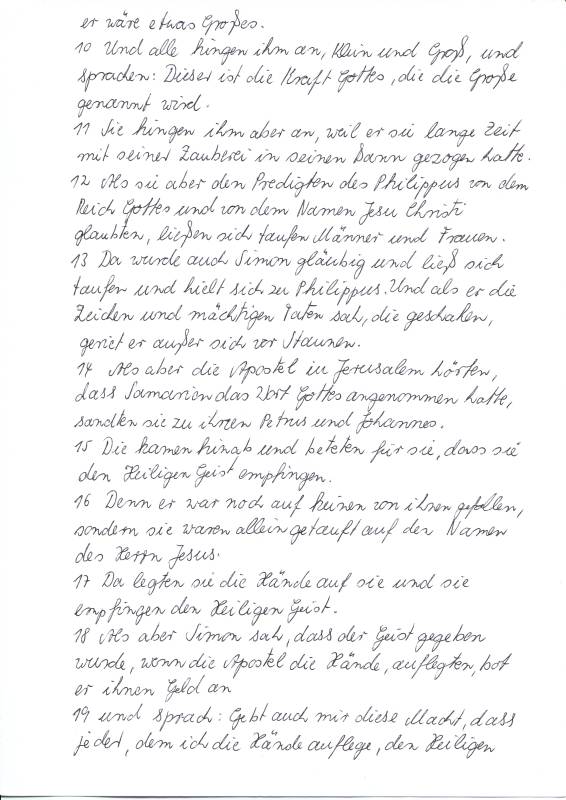 er wäre etwas Großes.
10 Und alle hingen ihm an, Klein und Groß, und
sprachen: Dieser ist die Kraft Gottes, die die Große
genannt wird.
11 Sie hingen ihm aber an, weil er sie lange Zeit
mit seiner Zauberei in seinen Bann gezogen hatte.
12 Als sie aber den Predigten des Philippus von dem
Reich Gottes und von dem Namen Jesu Christi
glaubten, ließen sich taufen Männer und Frauen.
13 Da wurde auch Simon gläubig und ließ sich
taufen und hielt sich zu Philippus. Und als er die
Zeichen und mächtigen Taten sah, die geschahen,
geriet er außer sich vor Staunen.
14 Als aber die Apostel in Jerusalem hörten,
dass Samarien das Wort Gottes angenommen hatte,
sandten sie zu ihnen Petrus und Johannes.
15 Die kamen hinab und beteten für sie, dass sie
den Heiligen Geist empfingen.
16 Denn er war noch auf keinen von ihnen gefallen,
sondern sie waren allein getauft auf den Namen
des Herrn Jesus.
17 Da legten sie die Hände auf sie und sie
empfingen den Heiligen Geist.
18 Als aber Simon sah, dass der Geist gegeben
wurde, wenn die Apostel die Hände, auflegten, bot
er ihnen Geld an
19 und sprach: Gebt auch mir diese Macht, dass
jeder, dem ich die Hände auflege, den Heiligen